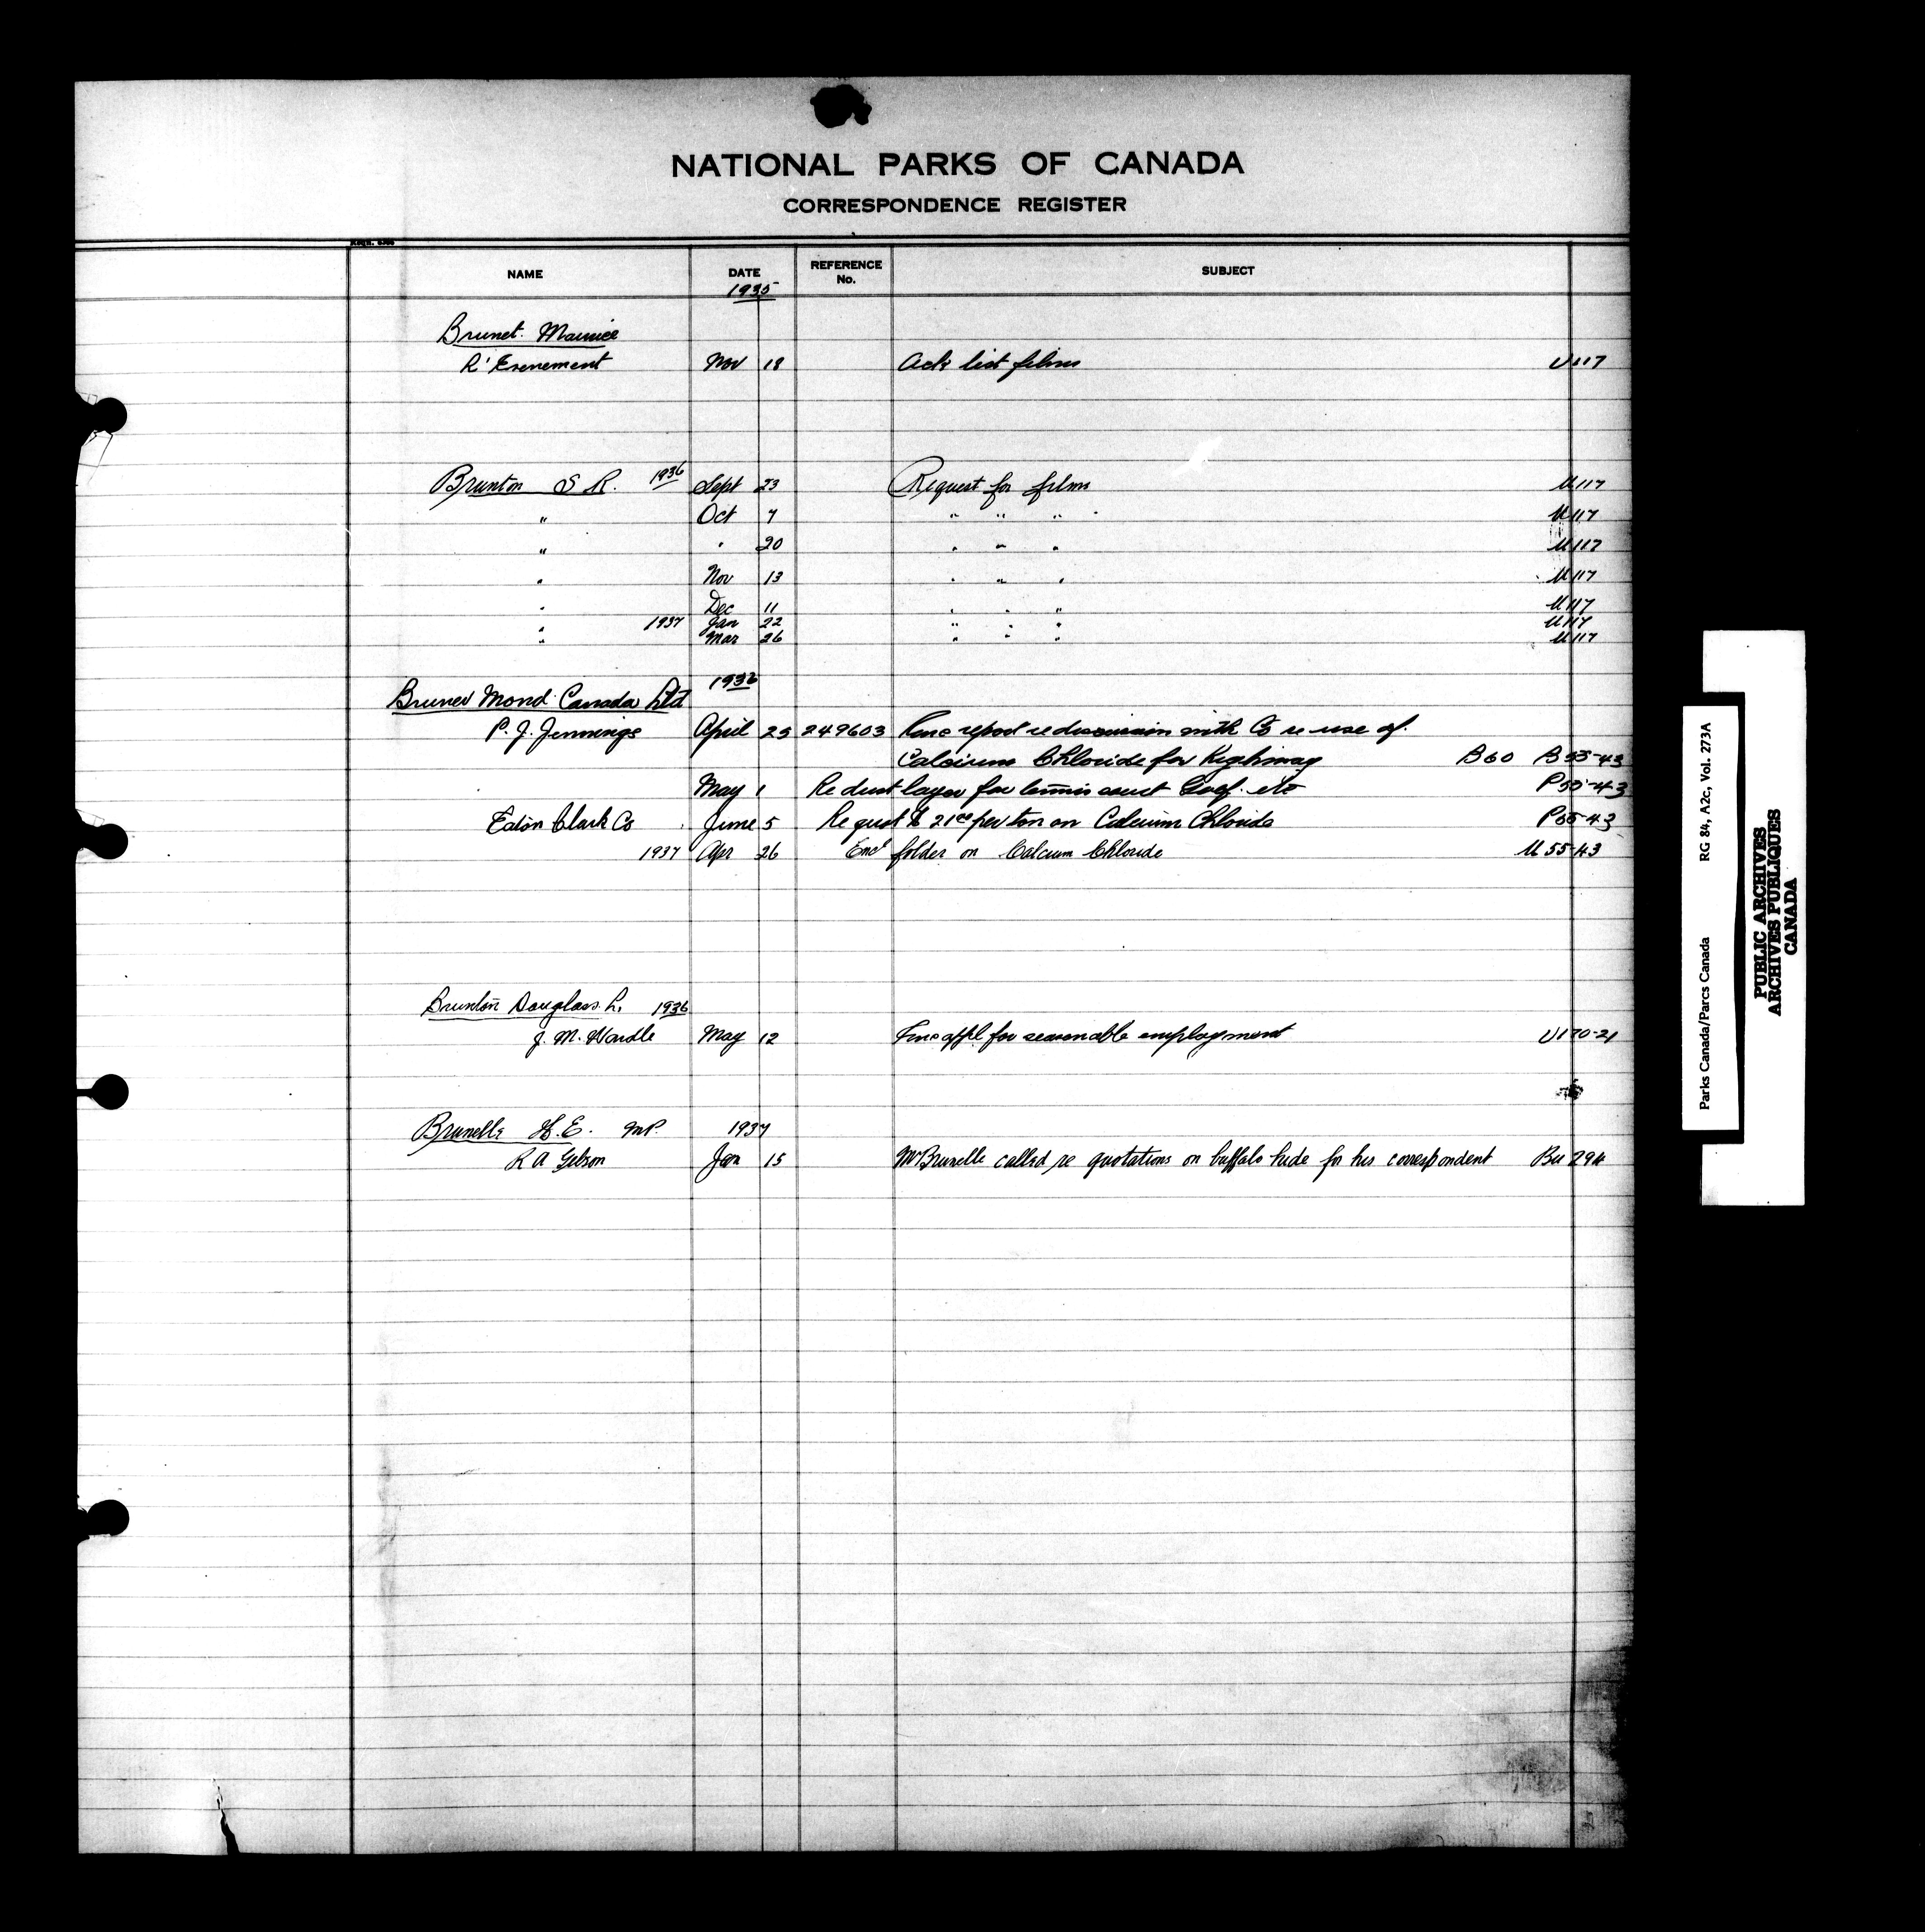 NATIONAL PARKS OF CANADA
CORRESPONDENCE REGISTER
NAME DATE REFERENCE No. SUBJECT
1935
Brunet. Maurice
L'Evenement Nov 18 Ack list films U 117
Brunton S R. 1936 Sept 23 Request for films U 117
" Oct 7 " " " U 117
" " 20 " " " U 117
" Nov 13 " " " U 117
" Dec 11 " " " U 117
" 1937 Jan 22 " " " U 117
" Mar 26 " " " U 117
1936
Bruner Mond Canada Ltd
P. J. Jennings April 23 249603 report re discussion with Co re use of
Calcium Chloride for Highway B60 B55-43
May 1 Re dust layer for tennis court Golf. etc P55-43
Eaton Clark Co June 5 Re quot 21.00 per ton on Calcium Chloride P55-43
1937 Apr 26 Encl folder on Calcium Chloride U 55-43
Brunton Douglass. L. 1936
J. M. Wardle May 12 appl for seasonable employment U170-21
Brunelle H. E. MP. 1937
R A Gibson Jan 15 Mr Brunelle called re quotations on buffalo hide for his correspondent Bu 294
Parks Canada/Parcs Canada RG 84, A2c, Vol. 273A
PUBLIC ARCHIVES
ARCHIVES PUBLIQUES
CANADA